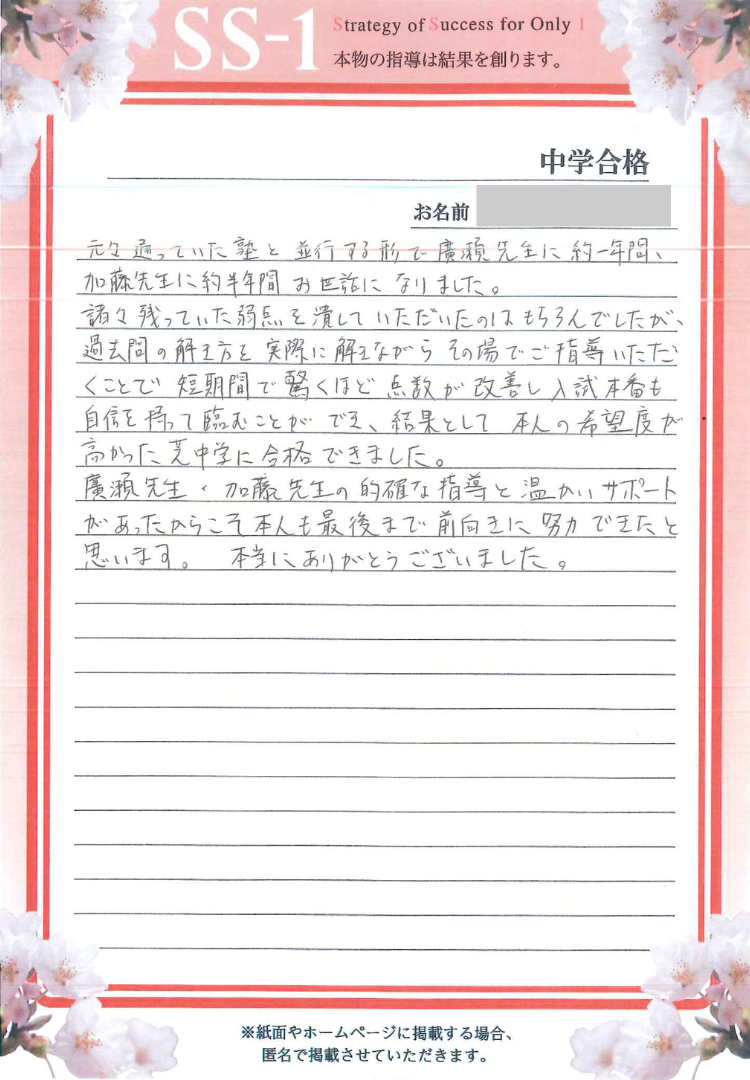 SS-1
Strategy of Success for Only 1
本物の指導は結果を創ります。
中学合格
お名前
元々通っていた塾と並行する形で廣瀬先生に約一年間、
加藤先生に約半年間お世話になりました。
諸々残っていた弱点を潰していただいたのはもちろんでしたが、
過去問の解き方を実際に解きながらその場でご指導いただ
くことで短期間で驚くほど点数が改善し入試本番も
自信を持って臨むことができ、結果として本人の希望度が
高かった芝中学に合格できました。
廣瀬先生・加藤先生の的確な指導と温かいサポート
があったからこそ本人も最後まで前向きに努力できたと
思います。 本当にありがとうございました。
※紙面やホームページに掲載する場合、
匿名で掲載させていただきます。